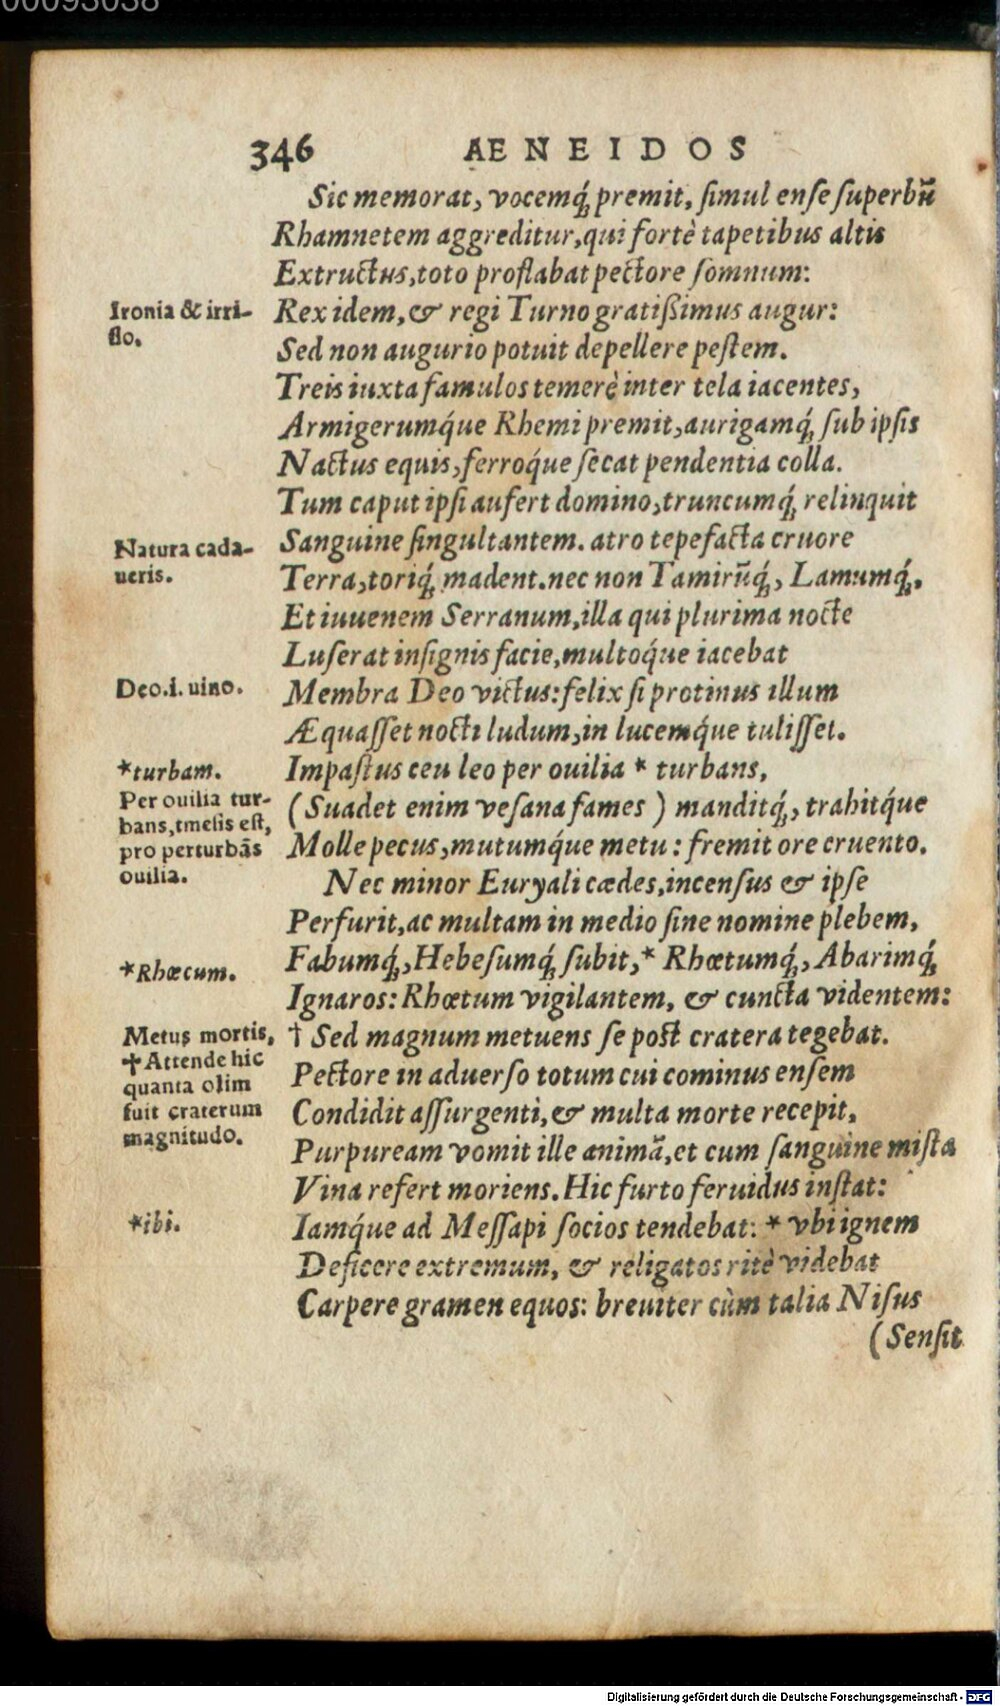 00093038
346 AENEIDOS
Sic memorat, vocemq́; premit, ſimul enſe ſuperbũ
Rhamnetem aggreditur, qui fortè tapetibus altis
Extructus, toto proflabat pectore ſomnum:
Ironia & irri-
ſio.
Rex idem, & regi Turno gratißimus augur:
Sed non augurio potuit depellere peſtem.
Treis iuxta famulos temerè inter tela iacentes,
Armigerumq́ue Rhemi premit, aurigamq́; ſub ipſis
Nactus equis, ferroq́ue ſecat pendentia colla.
Tum caput ipſi aufert domino, truncumq́; relinquit
Natura cada-
ueris.
Sanguine ſingultantem. atro tepefacta cruore
Terra, toriq́; madent. nec non Tamirũq́;, Lamumq́;,
Et iuuenem Serranum, illa qui plurima nocte
Luſerat inſignis facie, multoq́ue iacebat
Deo.i. uino.
Membra Deo victus: felix ſi protinus illum
Æquaſſet nocti ludum, in lucemq́ue tuliſſet.
*turbam.
Impaſtus ceu leo per ouilia * turbans,
Per ouilia tur-
bans, tmeſis eſt,
pro perturbãs
ouilia.
(Suadet enim veſana fames) manditq́;, trahitq́ue
Molle pecus, mutumq́ue metu: fremit ore cruento.
Nec minor Euryali cædes, incenſus & ipſe
Perfurit, ac multam in medio ſine nomine plebem,
*Rhœcum.
Fabumq́;, Hebeſumq́; ſubit, * Rhœtumq́;, Abarimq́;
Ignaros: Rhœtum vigilantem, & cuncta videntem:
Metus mortis,
✝ Attende hic
quanta olim
fuit craterum
magnitudo.
† Sed magnum metuens ſe poſt cratera tegebat.
Pectore in aduerſo totum cui cominus enſem
Condidit aſſurgenti, & multa morte recepit,
Purpuream vomit ille animã, et cum ſanguine miſta
Vina refert moriens. Hic furto feruidus inſtat:
*ibi.
Iamq́ue ad Meſſapi ſocios tendebat: * vbi ignem
Deficere extremum, & religatos ritè videbat
Carpere gramen equos: breuiter cùm talia Niſus
(Senſit
Digitalisierung gefördert durch die Deutsche Forschungsgemeinschaft - DFG